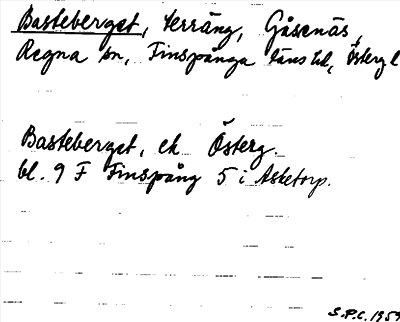 Basteberget, terräng, Gåsenäs,
Regna sn, Finspånga läns hd, Österg l
Basteberget, ek Österg.
bl. 9 F Finspång 5 i Asketorp.
S.P.C. 1959